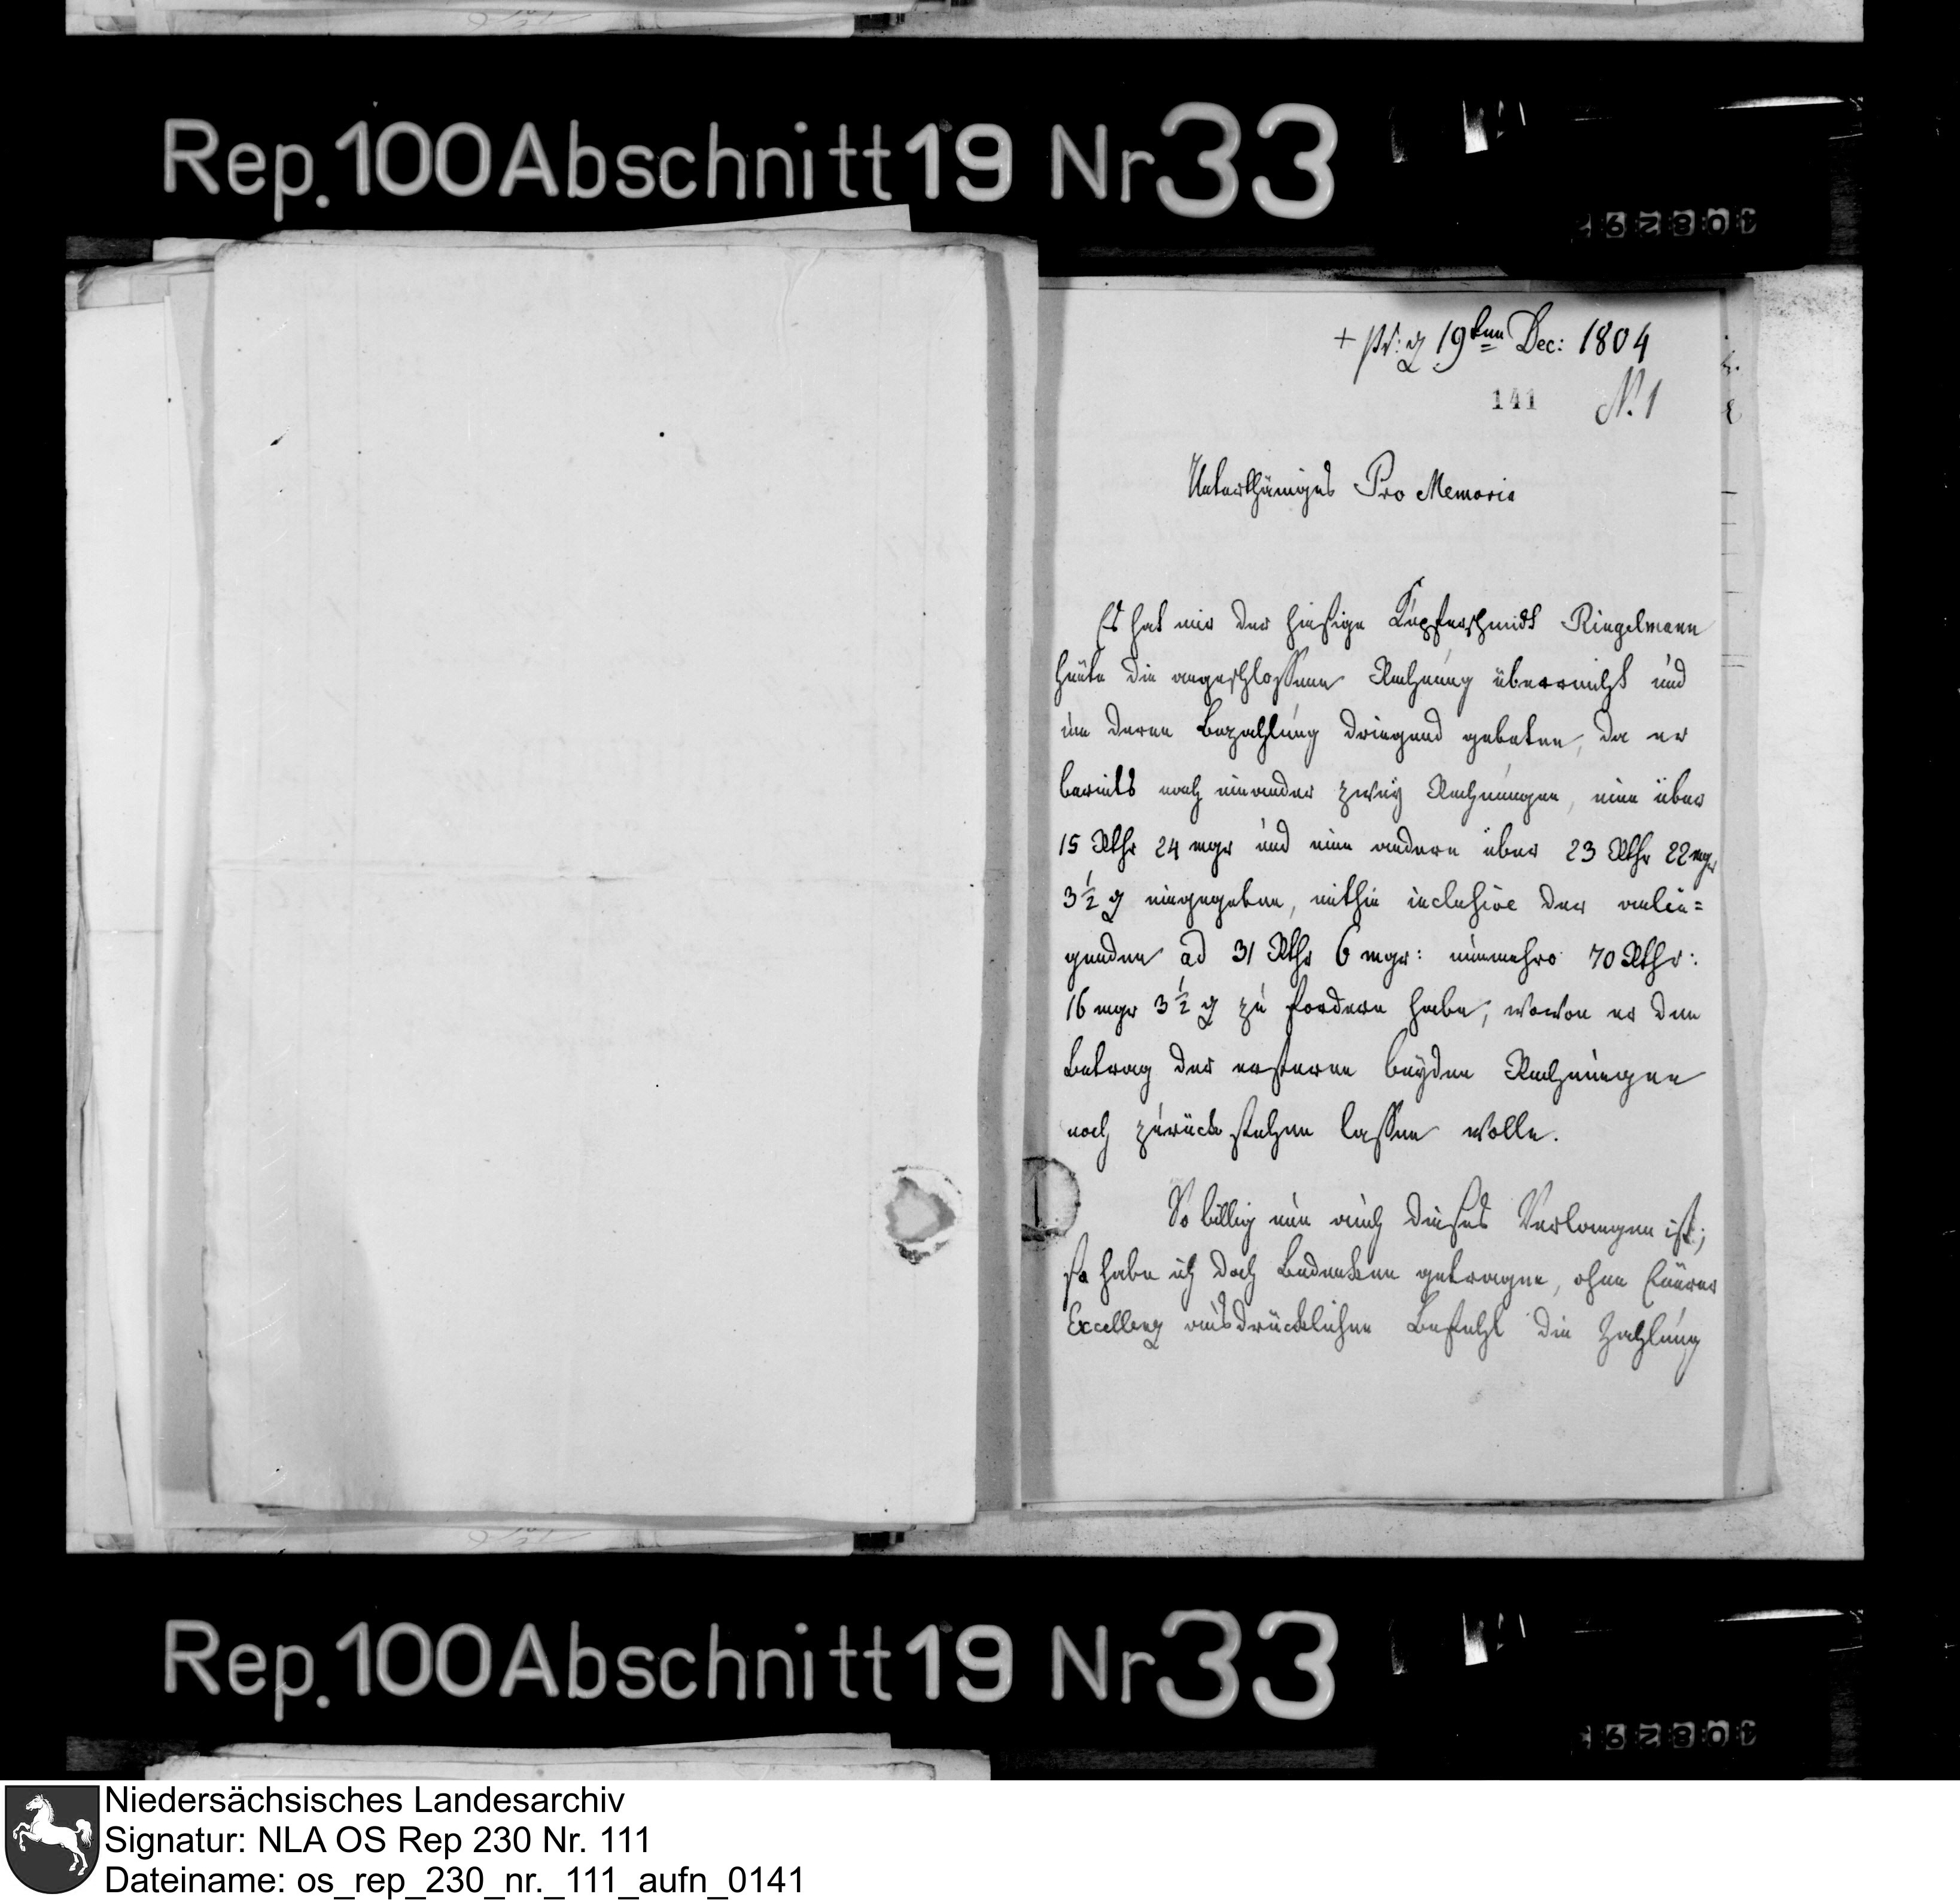 Rep. 100 Abschnitt 19 Nr 33
+ pr: d 19ten Dec: 1804
141 N. 1
Unterthäniges Pro Memoria
Es hat mir der hiesige Kupferschmidt Ringelmann
heute die angeschlossene Rechnung überreicht und
um deren Bezahlung dringend gebeten, da er
bereits nach einander zwey Rechnungen, eine über
15 Rthr 24 mgr und eine andere über 23 Rthr 22 mgr
3½ d eingegeben, mithin inclusive der anlie=
genden ad 31 Rthr 6 mgr: nunmehro 70 Rthr:
16 mgr 3½ d zu fordern habe, wovon er den
Betrag der ersteren beyden Rechnungen
noch zurück stehen lassen wolle.
So billig nun auch dieses Verlangen ist;
so habe ich doch Bedenken getragen, ohne Euerer
Excellenz ausdrücklichen Befehl die Zahlung
Rep. 100 Abschnitt 19 Nr 33
Niedersächsisches Landesarchiv
Signatur: NLA OS Rep 230 Nr. 111
Dateiname: os_rep_230_nr._111_aufn_0141